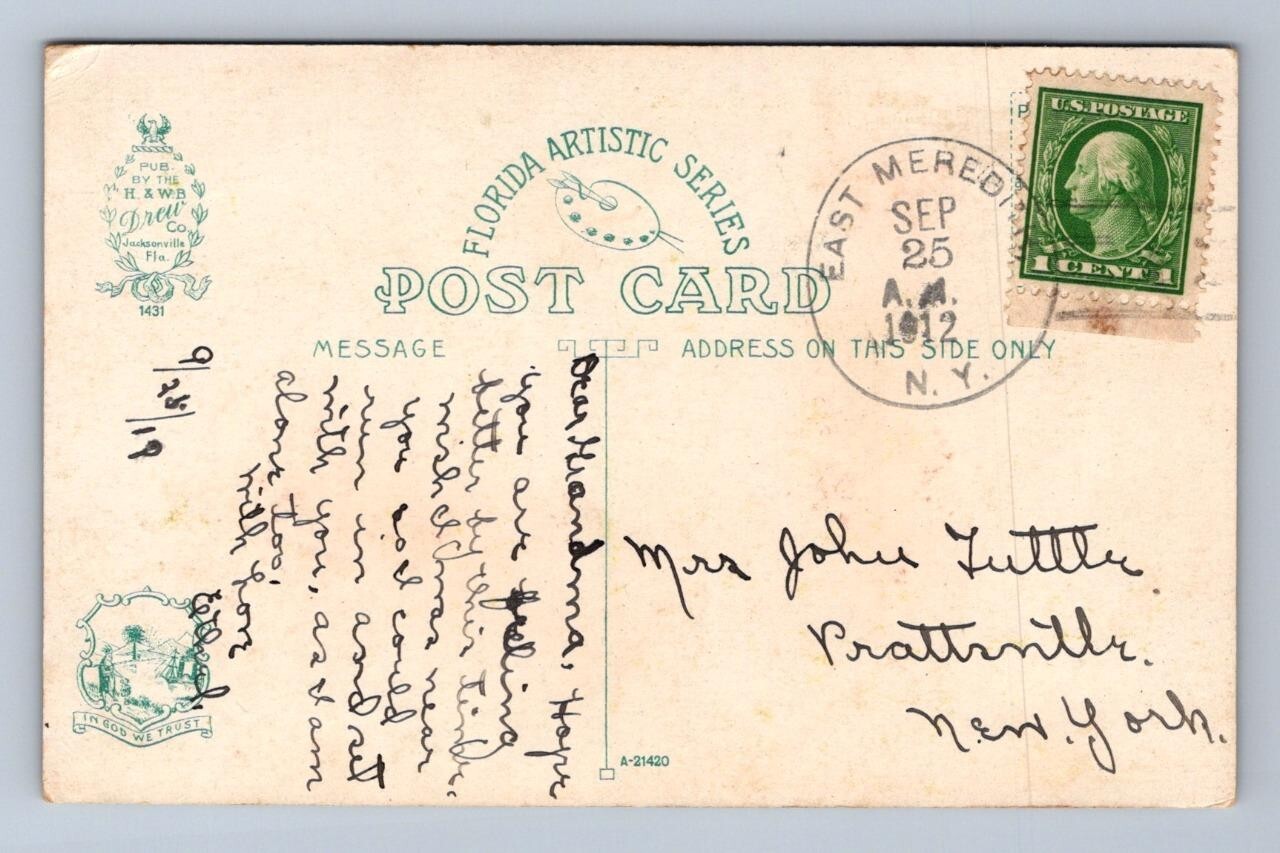 PUB.
BY THE
H. & W.B
Drew
Co
Jacksonville
Fla.
1431
FLORIDA ARTISTIC SERIES
POST CARD
MESSAGE
ADDRESS ON THIS SIDE ONLY
EAST MEREDI
SEP
25
A.M.
1912
N.Y.
U.S. POSTAGE
1 CENT 1
P
9/25/19
Dear Grandma, Hope
you are feeling
better by this time.
wish I was near
you so I could
run in and set
with you, as I am
alone too.
with love
Ethel.
Mrs John Tuttle
Prattsville.
New York.
IN GOD WE TRUST
A-21420